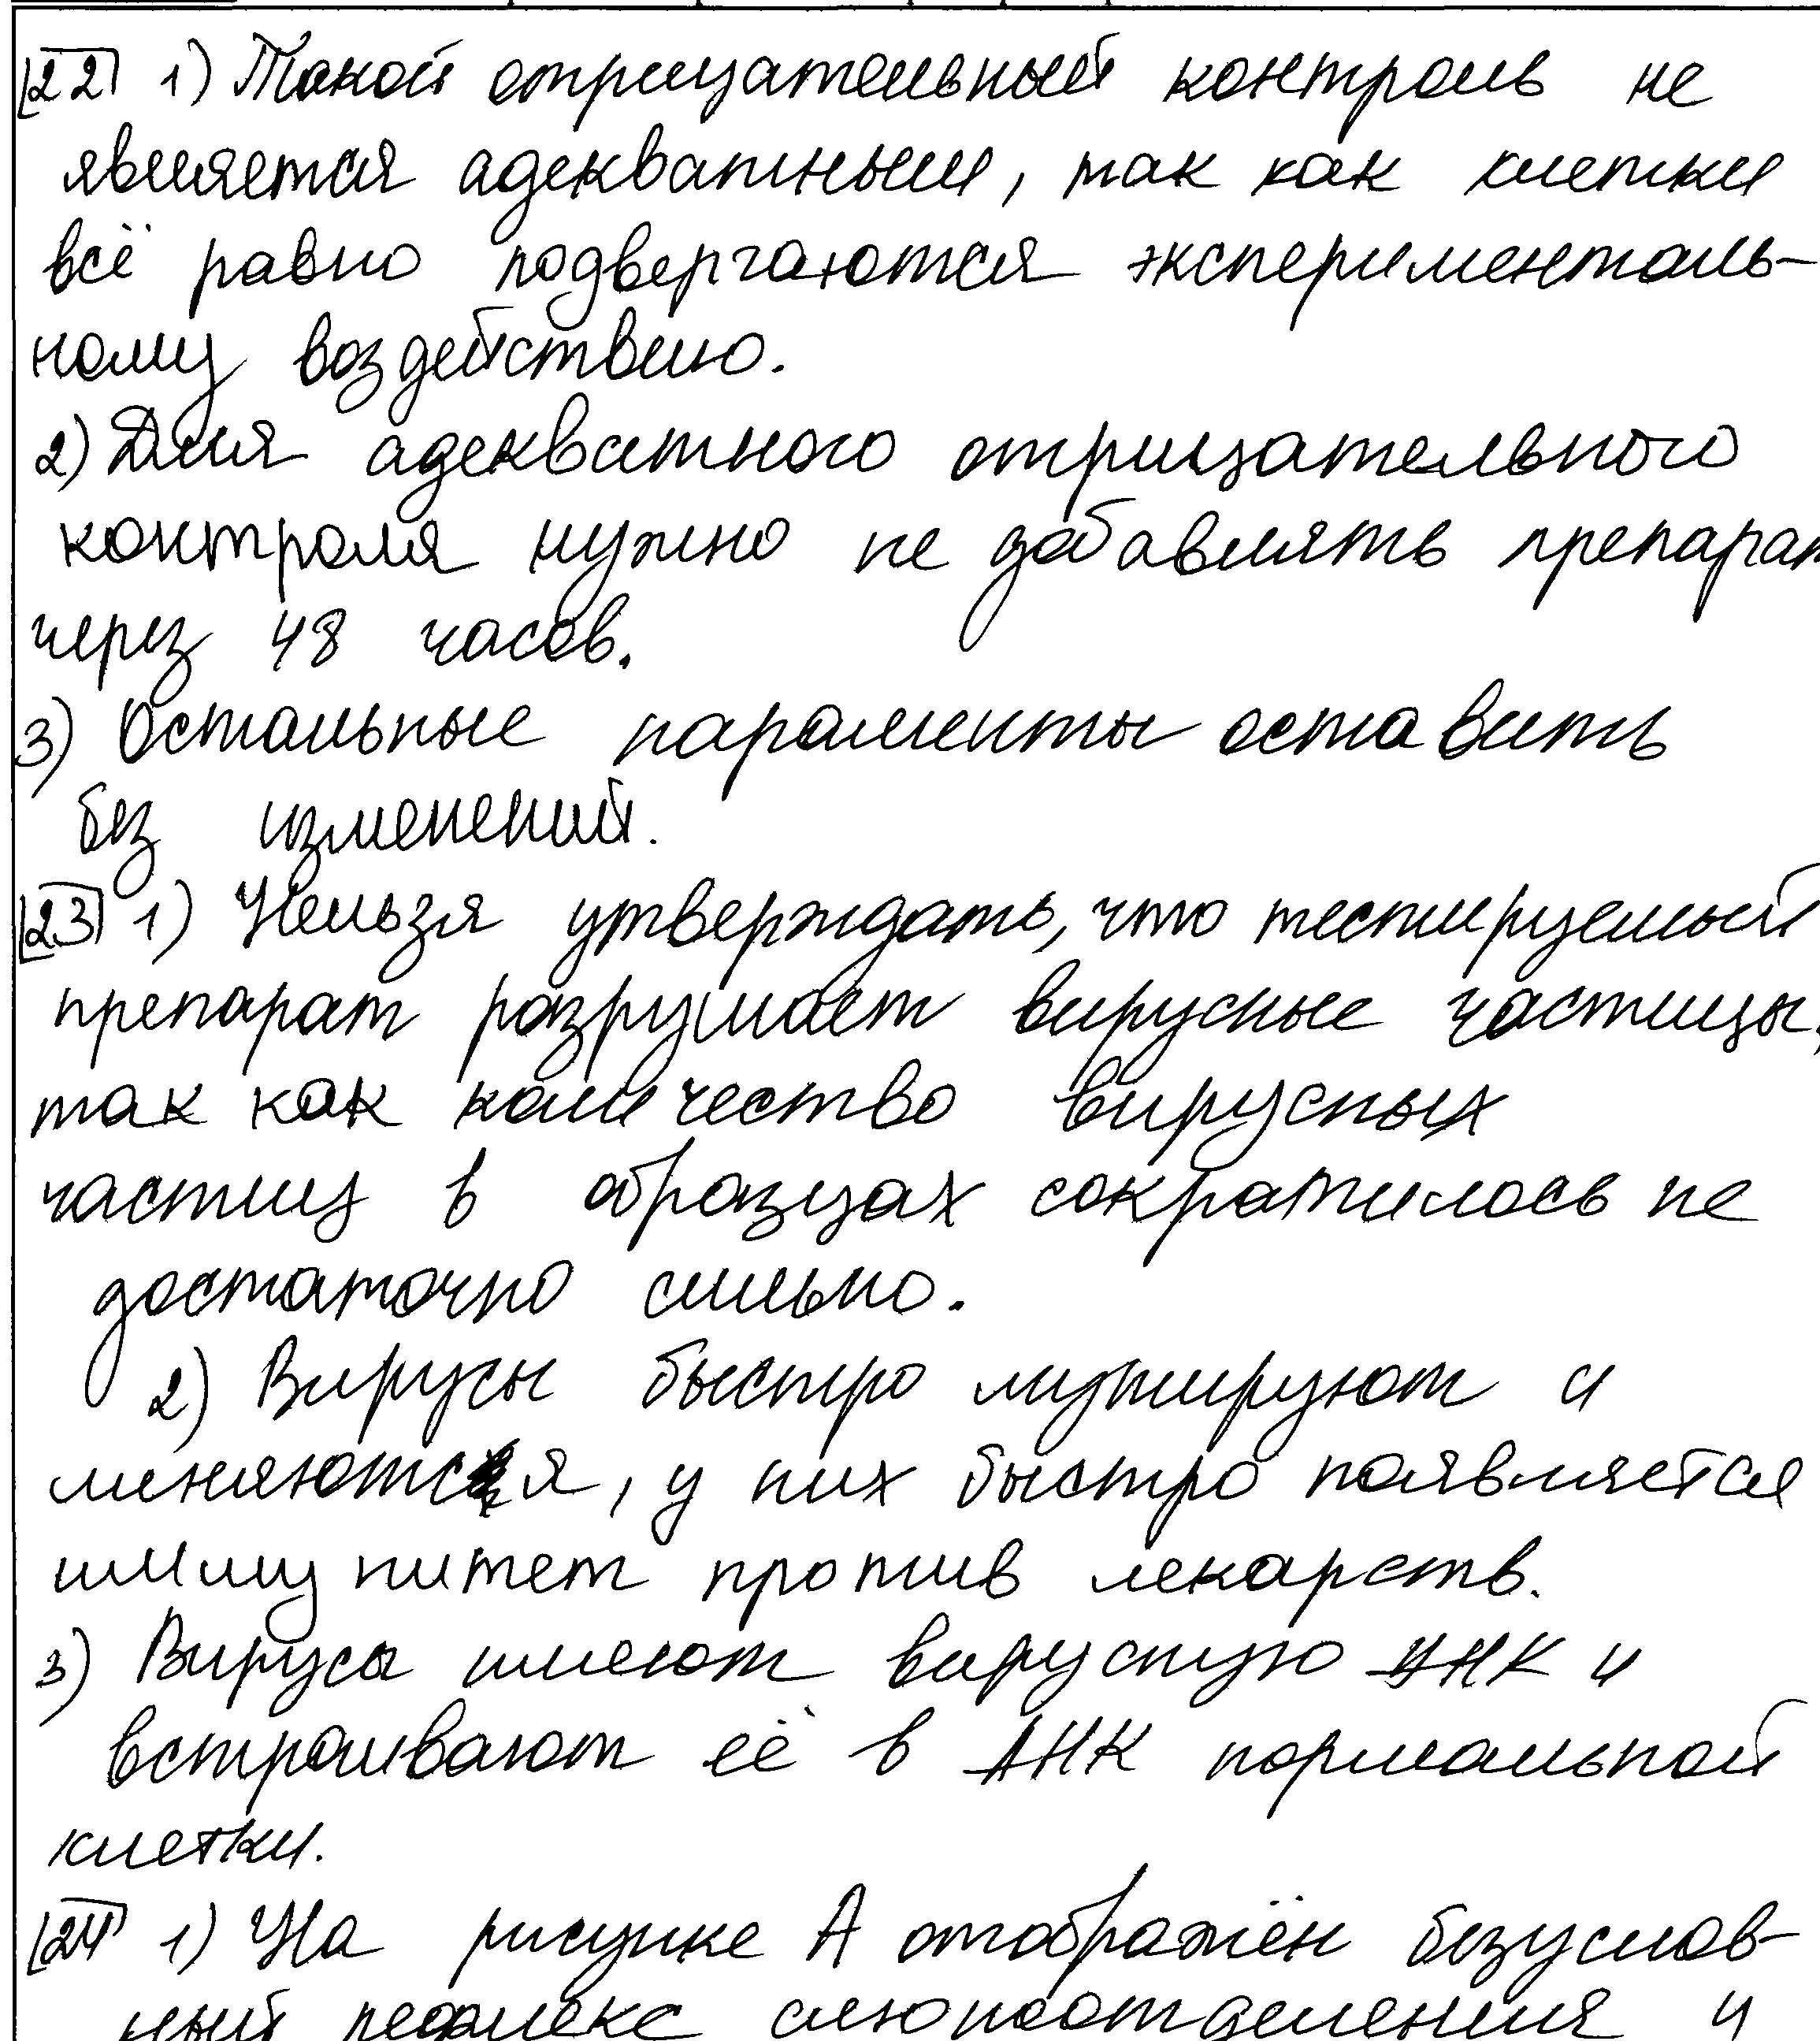 22 1) Такой отрицательный контроль не
является адекватным, так как клетки
всё равно подвергаются эксперименталь-
ному воздействию.
2) Для адекватного отрицательного
контроля нужно не добавлять препарат
через 48 часов.
3) Остальные параменты оставить
без изменений.
23 1) Нельзя утверждать, что тестируемый
препарат разрушает вирусные частицы,
так как количество вирусных
частиц в образцах сократилось не
достаточно сильно.
2) Вирусы быстро мутируют и
меняются, у них быстро появляется
иммунитет против лекарств.
3) Вирусы имеют вирусную ДНК и
встраивают её в ДНК нормальной
клетки.
24 1) На рисунке А отображён безуслов-
ный рефлекс слюноотделения и